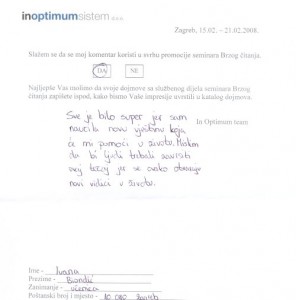 inoptimumsistem d.o.o.
Zagreb, 15.02. – 21.02.2008.
Slažem se da se moj komentar koristi u svrhu promocije seminara Brzog čitanja.
DA NE
Najljepše Vas molimo da svoje dojmove sa službenog dijela seminara Brzog
čitanja zapišete ispod, kako bismo Vaše impresije uvrstili u katalog dojmova.
In Optimum team
Sve je bilo super jer sam
naučila novu vještinu koja
će mi pomoći u životu. Mislim
da bi ljudi trebali završiti
ovaj tečaj jer se ovako otvaraju
novi vidici u životu.
Ime - Ivana
Prezime - Biondić
Zanimanje - učenica
Poštanski broj i mjesto - 10 000 Zagreb